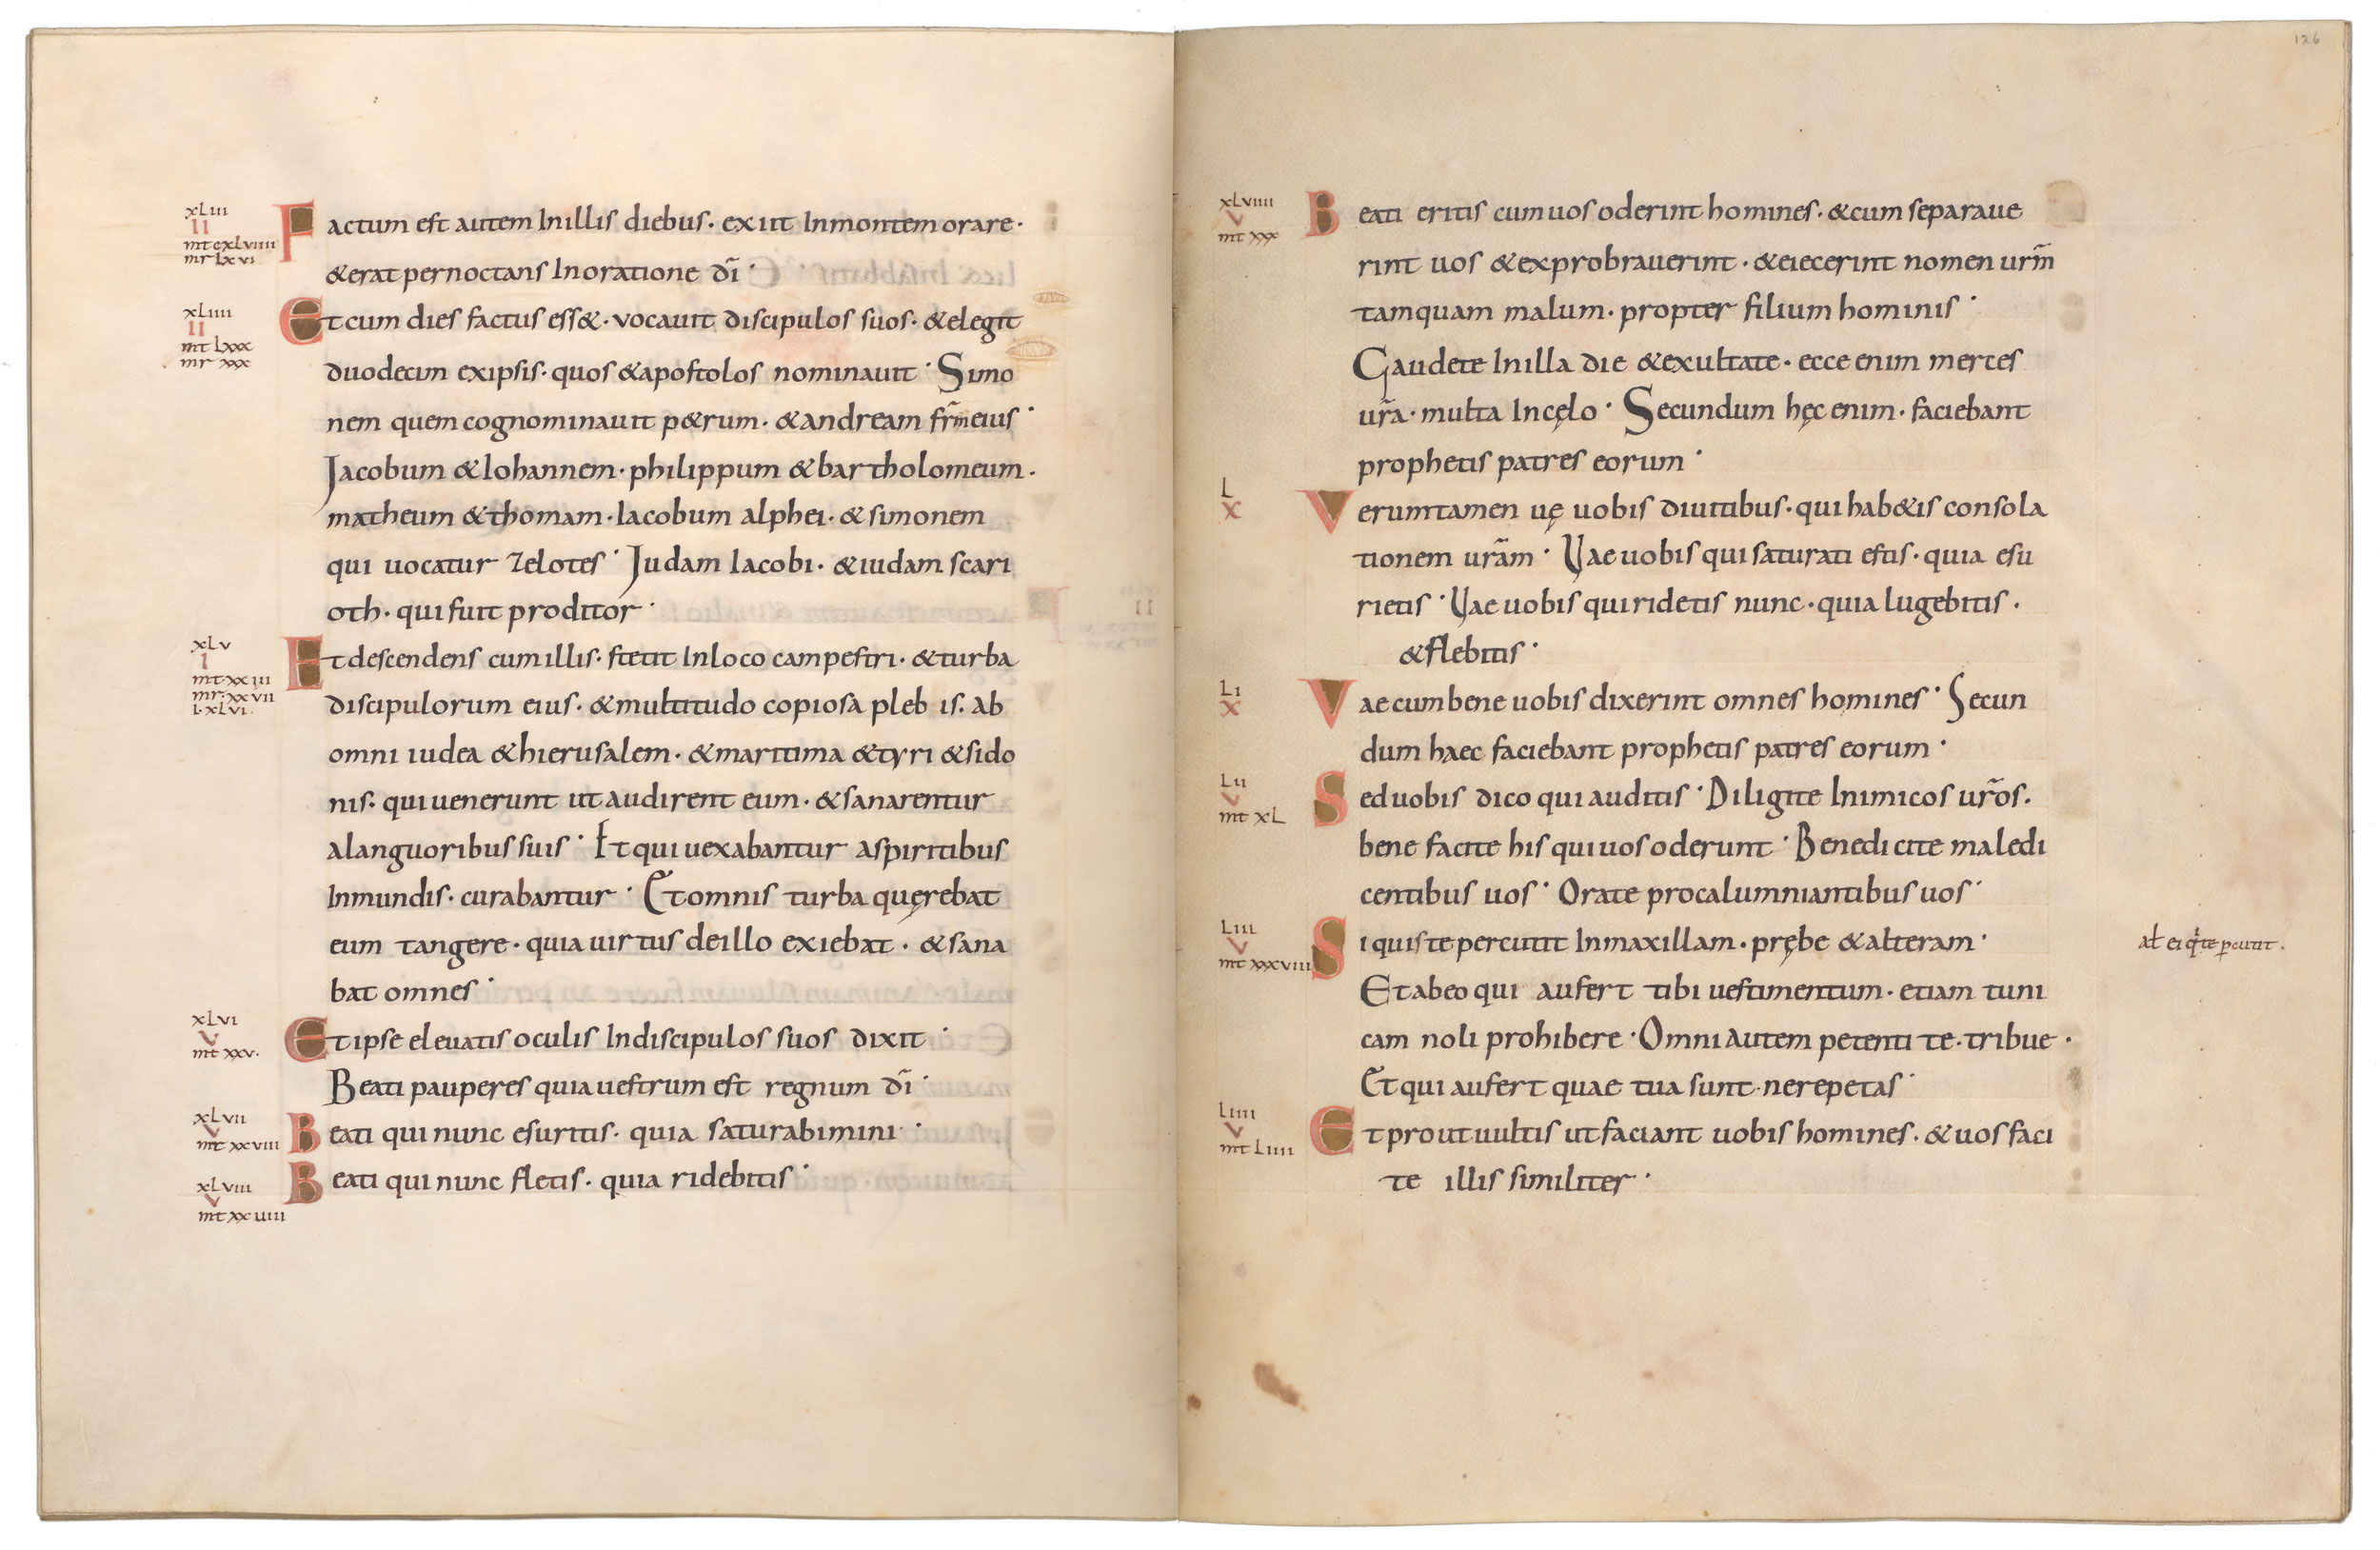 xLiii
II
mt cxLviiii
mr Lxvi
Factum est autem Inillis diebus. exiit Inmontem orare.
&erat pernoctans Inoratione dī.
xLiiii
II
mt Lxxx
mr xxx
Et cum dies factus ess&. vocavit discipulos suos. &elegit
duodecim exipsis. quos &apostolos nominavit. Simo
nem quem cognominavit p&rum. &andream fr̄m eius.
Jacobum &Iohannem. philippum &bartholomeum.
matheum &thomam. Iacobum alphei. &simonem
qui uocatur zelotes. Judam Iacobi. &iudam scari
oth. qui fuit proditor.
xLv
I
mt xxiii
mr. xxvii
L. xLvi.
Et descendens cum illis. stetit Inloco campestri. &turba
discipulorum eius. &multitudo copiosa pleb is. ab
omni iudea &hierusalem. &maritima &tyri &sido
nis. qui uenerunt ut audirent eum. &sanarentur
alanguoribus suis. Et qui uexabantur aspiritibus
Inmundis. curabantur. Et omnis turba quęrebat
eum tangere. quia uirtus deillo exiebat. &sana
bat omnes.
xLvi
V
mt xxv.
Et ipse elevatis oculis Indiscipulos suos dixit.
Beati pauperes quia uestrum est regnum dī.
xLvii
V
mt xxviii
Beati qui nunc esuritis. quia saturabimini.
xLviii
V
mt xxviiii
Beati qui nunc fletis. quia ridebitis.
126
xLviiii
V
mt xxx
Beati eritis cum uos oderint homines. &cum separaue
rint uos &exprobrauerint. &eiecerint nomen urm̄
tamquam malum. propter filium hominis.
Gaudete Inilla die &exultate. ecce enim merces
ur̄a. multa Incęlo. Secundum hęc enim. faciebant
prophetis patres eorum.
L
X
Verumtamen uę uobis diuitibus. qui hab&is consola
tionem urām. Vae uobis qui saturati estis. quia esu
rietis. Vae uobis qui ridetis nunc. quia lugebitis.
&flebitis.
Li
X
Vae cum bene uobis dixerint omnes homines. Secun
dum haec faciebant prophetis patres eorum.
Lii
V
mt xL
Sed uobis dico qui auditis. Diligite Inimicos ur̄os.
bene facite his qui uos oderunt. Benedicite maledi
centibus uos. Orate procalumniantibus uos.
Liii
V
mt xxxviii
Si quis te percutit Inmaxillam. prębe &alteram.
al ei q̇ te pcutit.
Et abeo qui aufert tibi uestimentum. etiam tuni
cam noli prohibere. Omni autem petenti te. tribue.
Et qui aufert quae tua sunt. ne repetas.
Liiii
V
mt Liiii
Et prout uultis ut faciant uobis homines. &uos faci
te illis similiter.